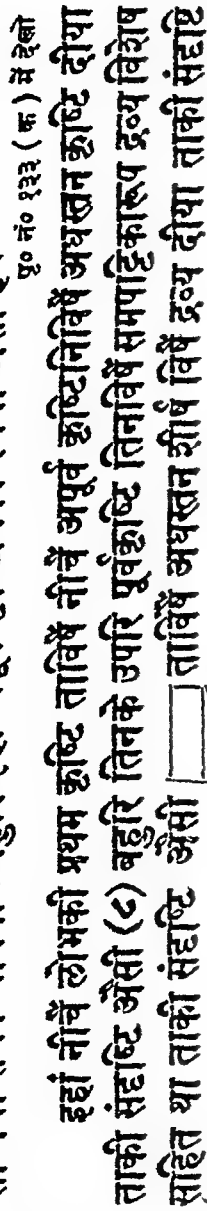 पृ० नं० १३३ ( क ) में देखो
इहां नीचैं लोभकी प्रथम कृष्टि ताविषैं नीचैं अपूर्व कृष्टिनिविषैं अधस्तन कृष्टि दीया
ताकी संदृष्टि औसी (८) बहुरि तिनके उपरि पूर्वकृष्टि तिनविषैं समपट्टिकारूप द्रव्य विशेष
सहित था ताकी संदृष्टि औसी ताविषैं अधस्तन शीर्ष विषैं द्रव्य दीया ताकी संदृष्टि